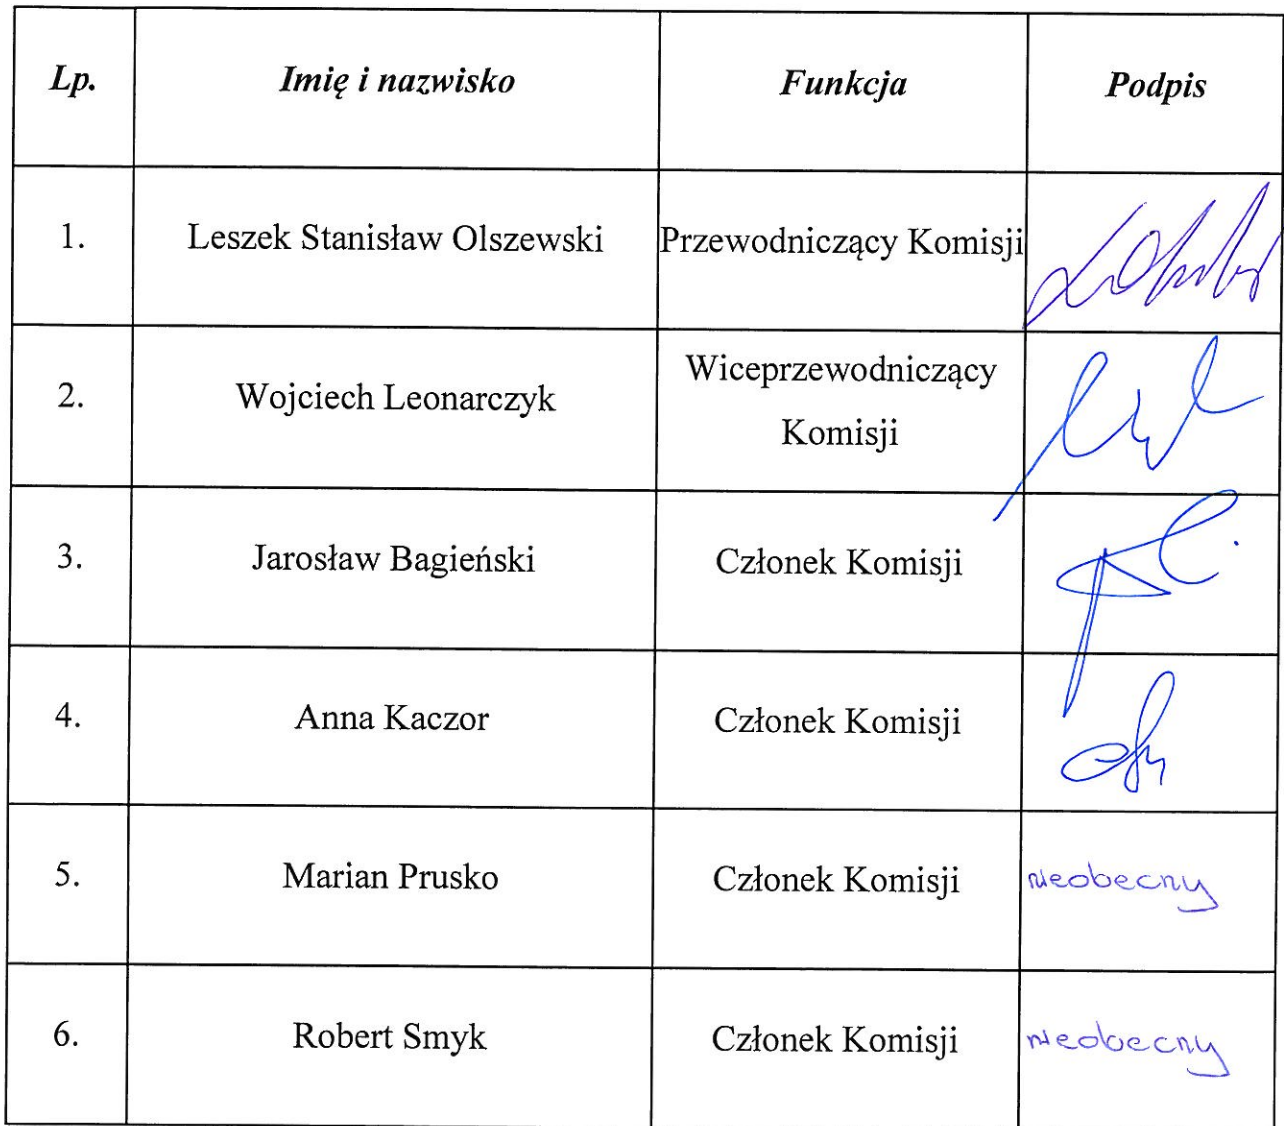 Lp. Imię i nazwisko Funkcja Podpis
1. Leszek Stanisław Olszewski Przewodniczący Komisji
2. Wojciech Leonarczyk Wiceprzewodniczący
Komisji
3. Jarosław Bagieński Członek Komisji
4. Anna Kaczor Członek Komisji
5. Marian Prusko Członek Komisji nieobecny
6. Robert Smyk Członek Komisji nieobecny